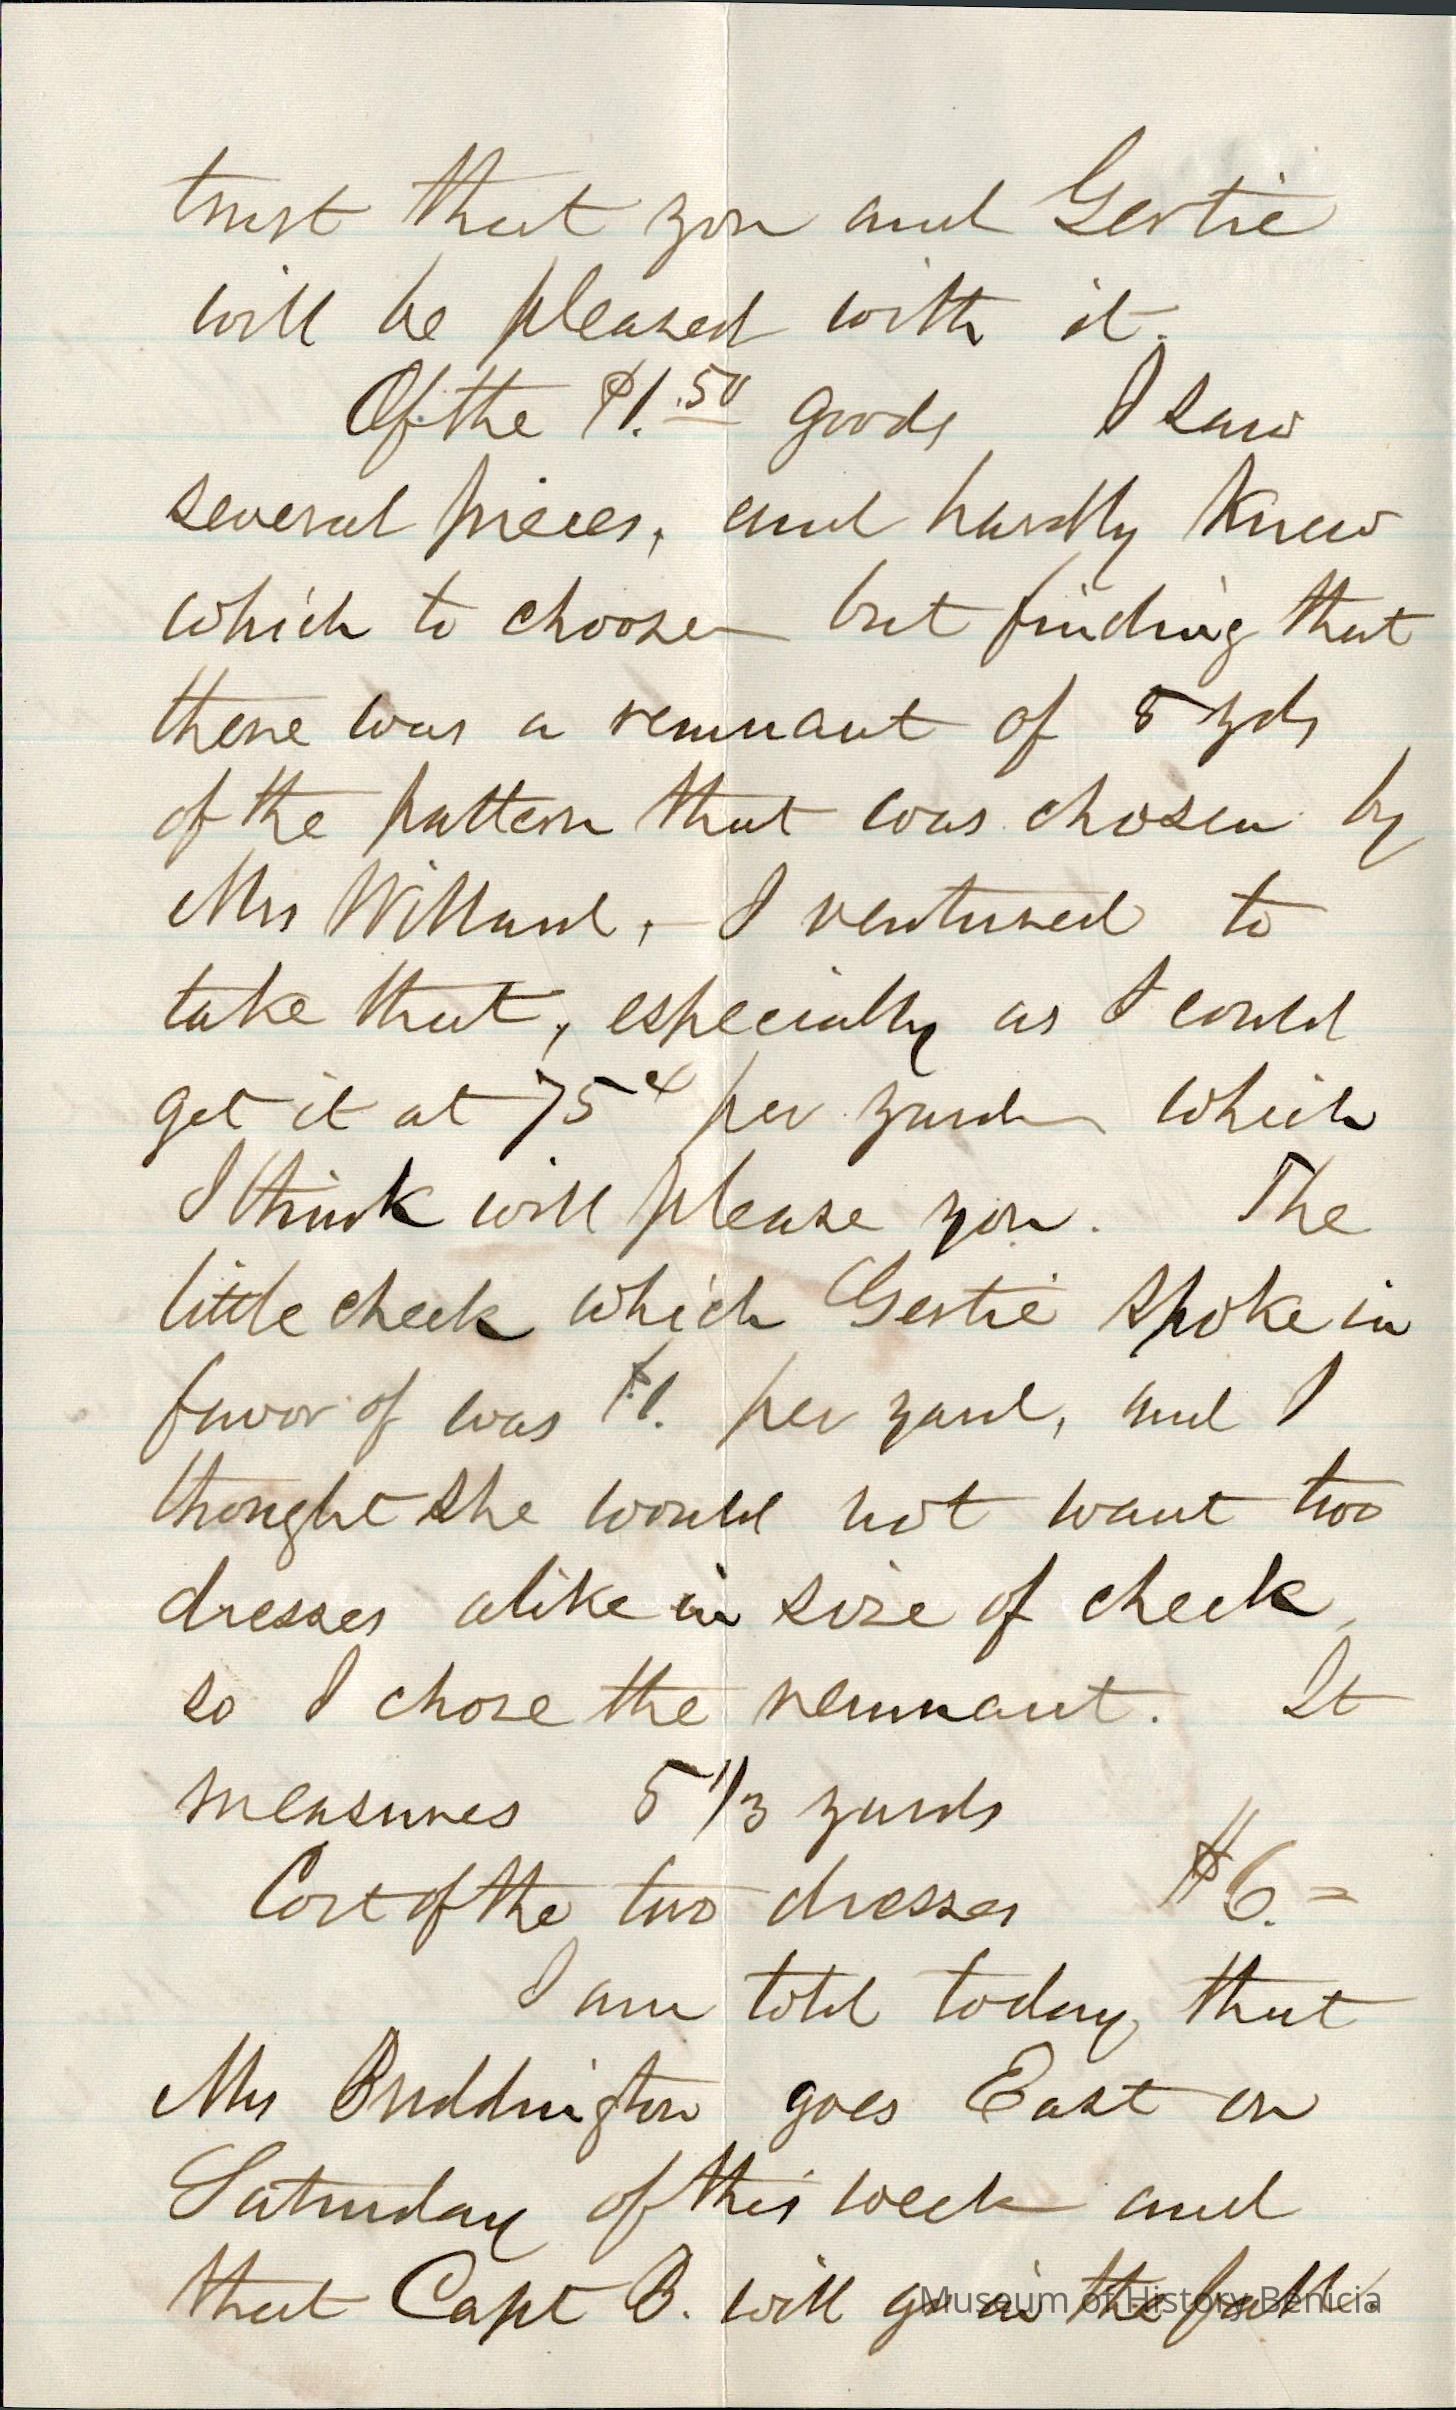 trust that you and Gertie
will be pleased with it.
Of the $1.50 goods I saw
several pieces, and hardly knew
which to choose but finding that
there was a remnant of 5 yds
of the pattern that was chosen by
Mrs Willard, - I ventured to
take that, especially as I could
get it at 75¢ per yard which
I think will please you. The
little check which Gertie spoke in
favor of was $1. per yard, and I
thought she would not want two
dresses alike in size of check,
so I chose the remnant. It
measures 5 1/3 yards
Cost of the two dresses $6.=
I am told today, that
Mrs Buddington goes East on
Saturday of this week and
that Capt B. will go in the fall.
Museum of History Benicia